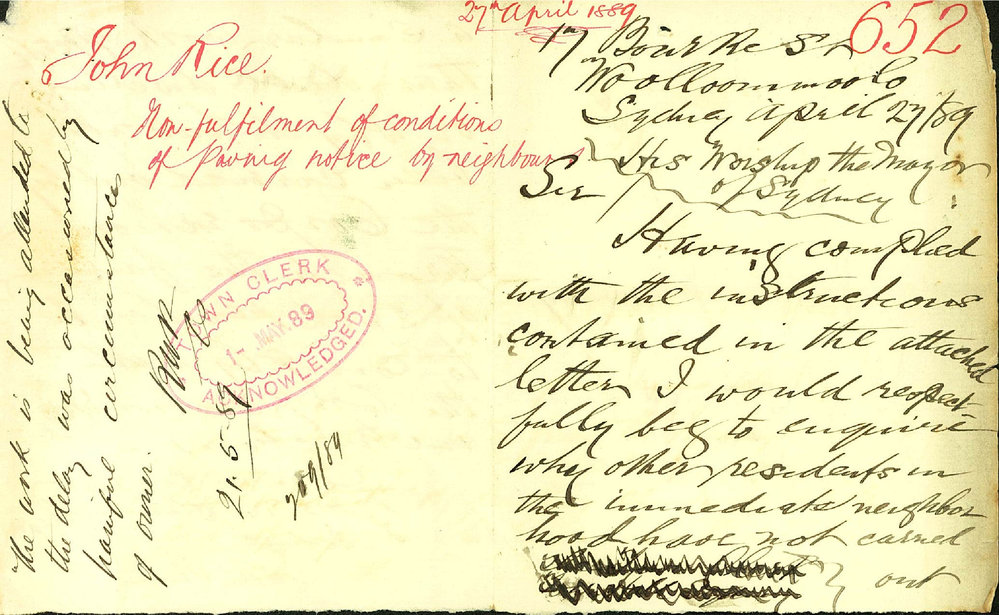 27th April 1889
652
John Rice.
Non-fulfilment of conditions
of Paving notice by neighbours
TOWN CLERK
1- MAY.89
ACKNOWLEDGED.
The work is being attended to
the delay was occasioned by
painful circumstances
of owner.
21.5.89
709/89
17 Bourke St
Woolloomooloo
Sydney April 27/89
His Worship the Mayor
of Sydney
Sir
Having complied
with the instructions
contained in the attached
letter I would respect-
fully beg to enquire
why other residents in
the immediate neighbor
hood have not carried
out